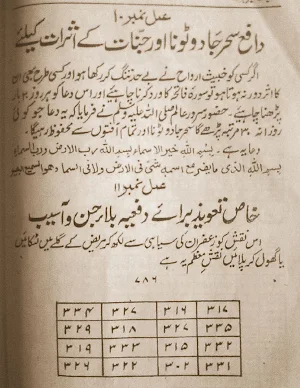 عمل نمبر ۱۰
دافع سحر جادو ٹونا اور جنات کے اثرات کیلئے
اگر کسی کو خبیث ارواح نے بے حد تنگ کر رکھا ہو اور کسی طرح بھی ان
کا اثر دور نہ ہوتا ہو تو سورۃ فاتحہ کا ورد کرنا چاہیئے اور اس دعا کو ہر روز ۳ بار
پڑھنا چاہیئے۔ حضور سرور عالم صلی اللہ علیہ وسلم نے فرمایا کہ یہ دعا جو کوئی
روزانہ ۳۰ مرتبہ پڑھے گا سحر جادو ٹونا اور تمام آفتوں سے محفوظ رہیگا۔
دعا یہ ہے۔ بسم اللہ خیر الاسماء بسم اللہ رب الارض ورب السماء
بسم اللہ الذی لا یضر مع اسمہ شیء فی الارض ولا فی السماء وھو السمیع العلیم
عمل نمبر ۱۱
خاص تعویذ برائے دفعیہ بلا جن و آسیب
اس نقش کو زعفران کی سیاہی سے لکھ کر مریض کے گلے میں لٹکائیں
یا گھول کر پلائیں نقش معظم یہ ہے
۷۸۶
۳۳۴ ۳۲۷ ۳۱۶ ۳۱۷
۳۲۹ ۳۱۸ ۳۲۷ ۳۳۵
۳۱۹ ۳۳۳ ۳۱۵ ۳۳۲
۳۲۶ ۳۲۲ ۳۰۲ ۳۳۱